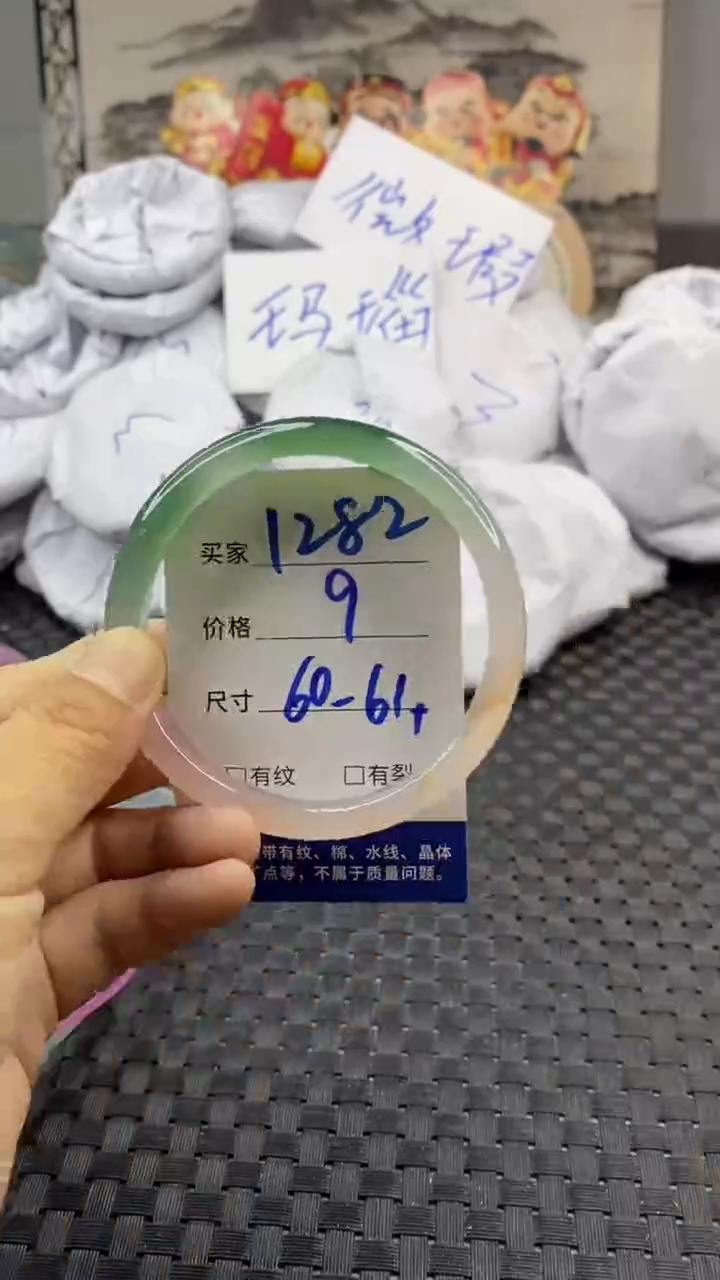 微瑕
玛瑙
买家 1282
价格 9
尺寸 60-61+
□有纹 □有裂
带有纹、棉、水线、晶体
点等，不属于质量问题。